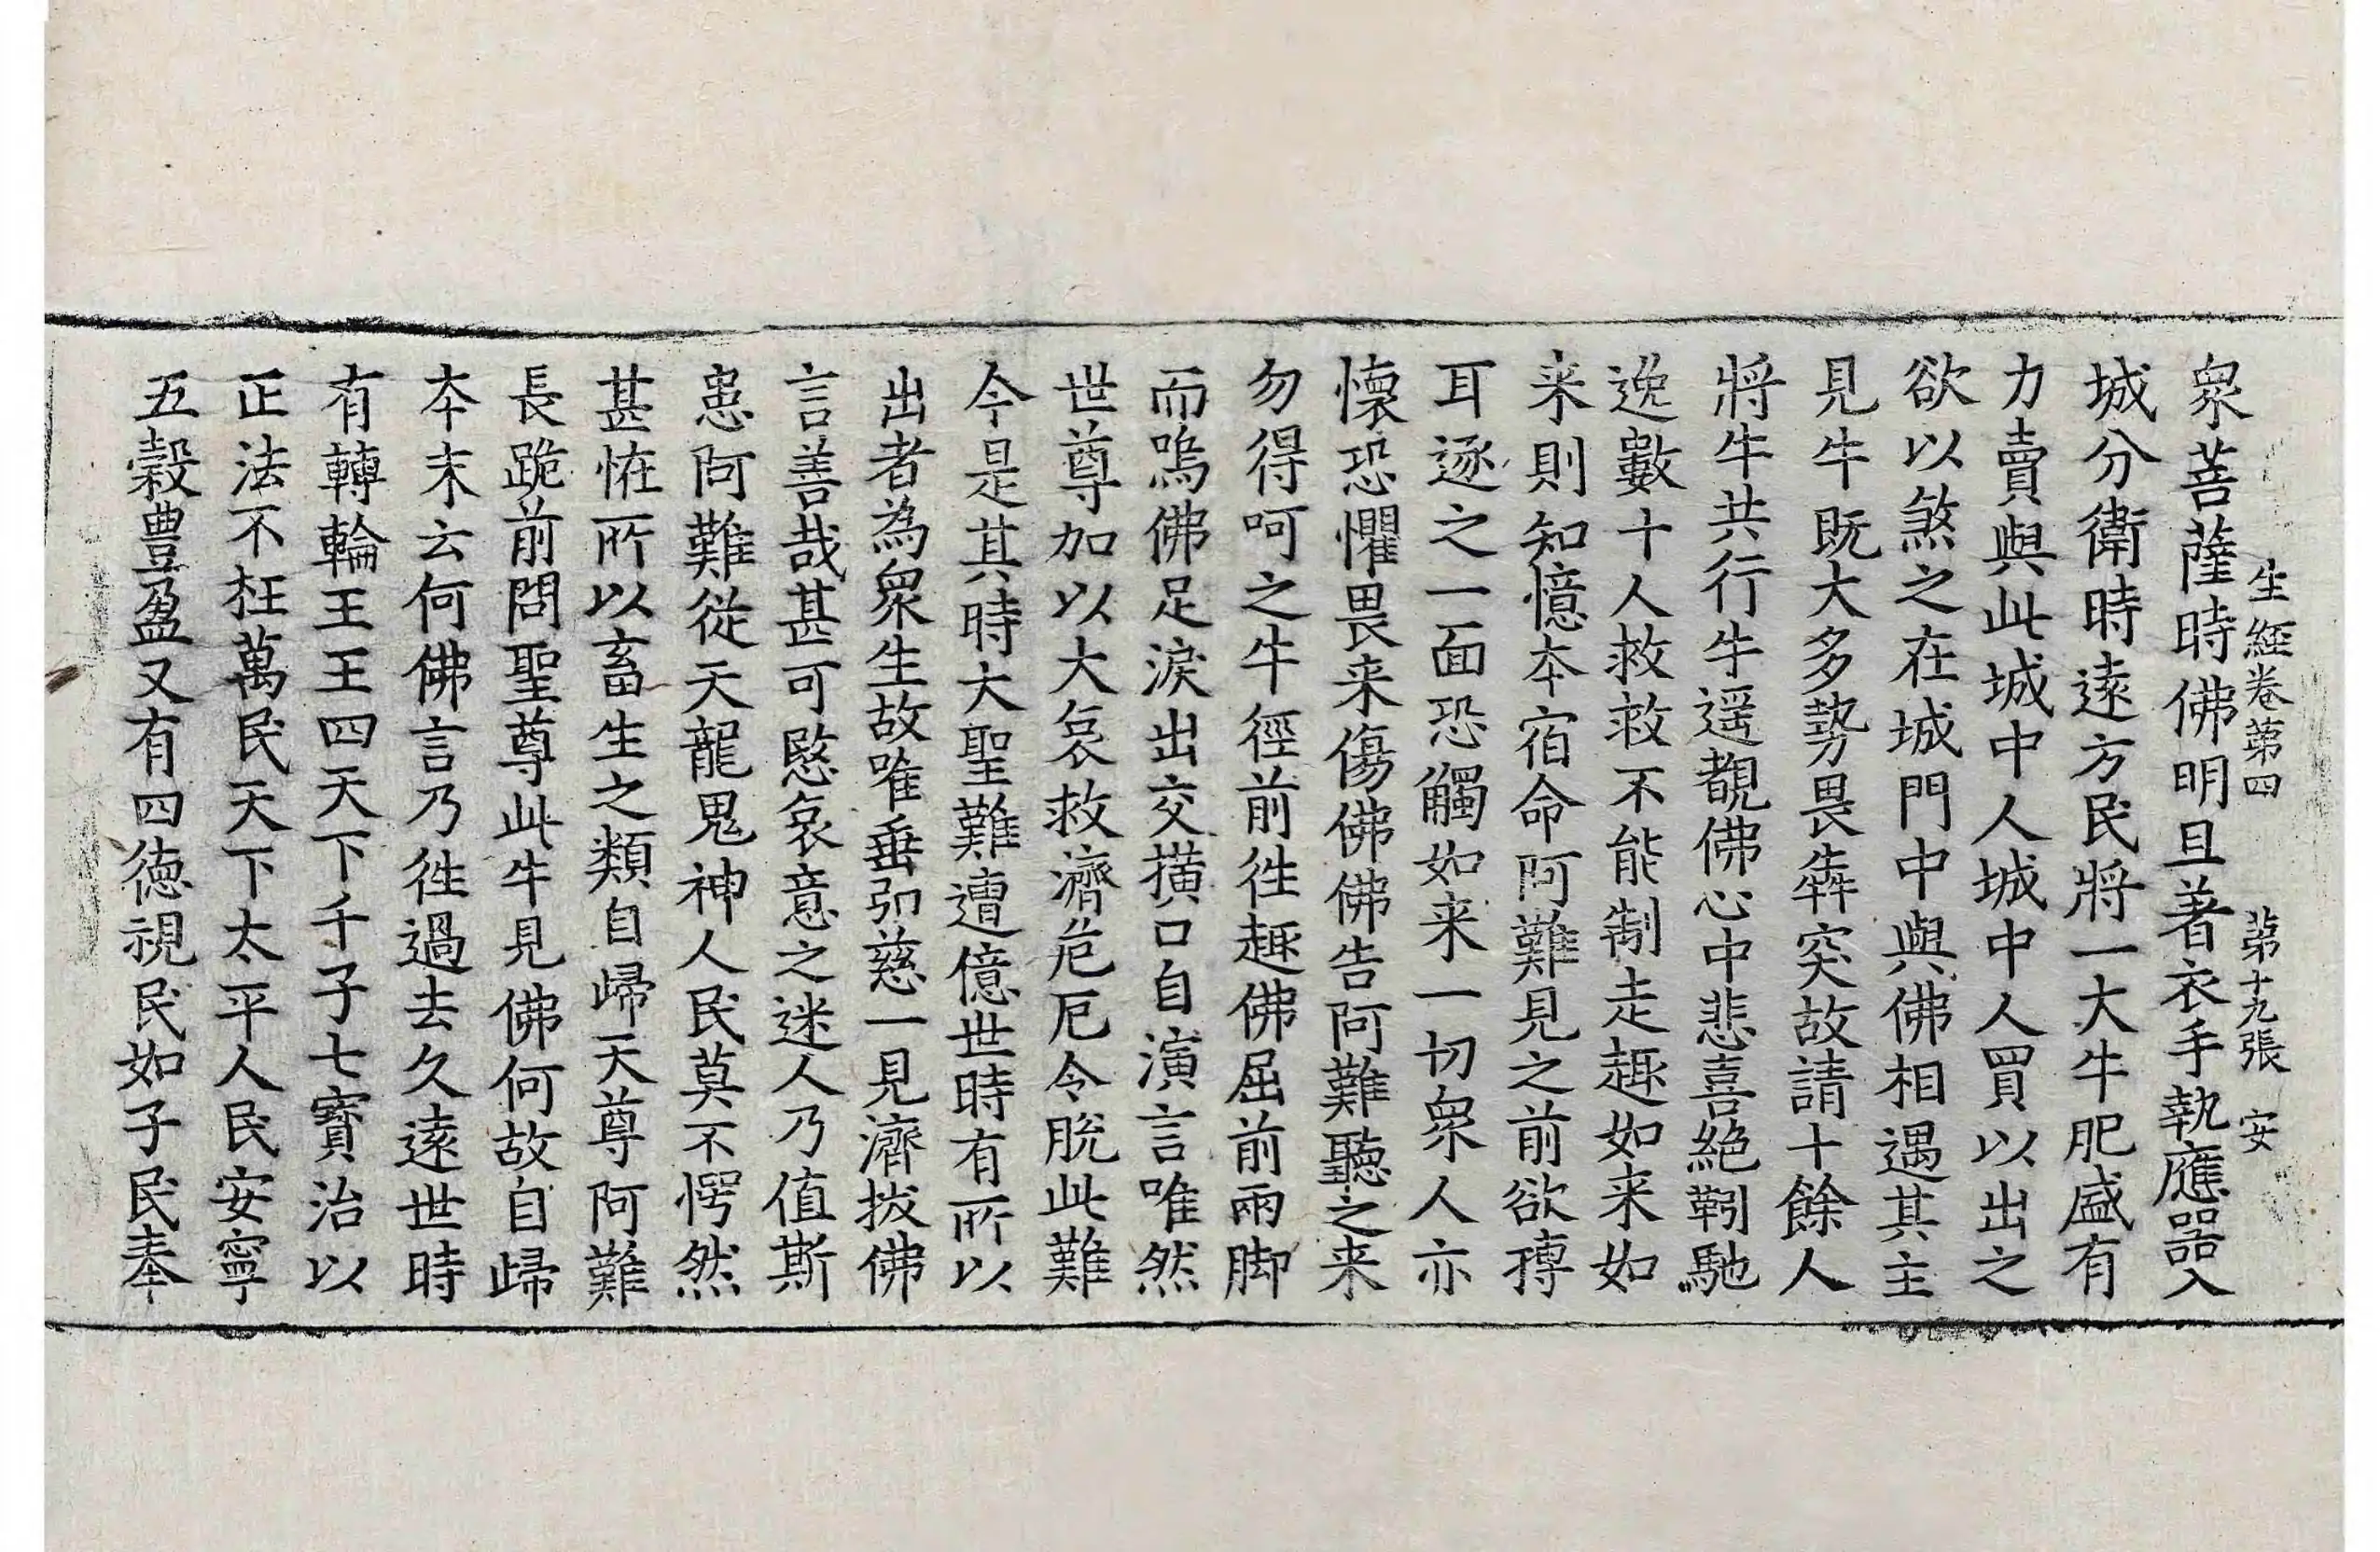 生經卷第四 第十九張 安
衆菩薩時佛明旦著衣手執應器入
城分衛時遠方民將一大牛肥盛有
力賣與此城中人城中人買以出之
欲以煞之在城門中與佛相遇其主
見牛既大多勢畏犇突故請十餘人
將牛共行牛遥覩佛心中悲喜絶靷馳
逸數十人救救不能制走趣如来如
来則知憶本宿命阿難見之前欲摶
耳逐之一面恐觸如来一切衆人亦
懷恐懼畏来傷佛佛告阿難聽之来
勿得呵之牛徑前徃趣佛屈前兩脚
而嗚佛足淚出交撗口自演言唯然
世尊加以大哀救濟危厄令脫此難
今是其時大聖難遭億世時有所以
出者為衆生故唯垂弘慈一見濟拔佛
言善哉甚可愍哀意之迷人乃值斯
患阿難從天龍鬼神人民莫不愕然
甚恠所以畜生之類自歸天尊阿難
長跪前問聖尊此牛見佛何故自歸
本末云何佛言乃徃過去久遠世時
有轉輪王王四天下千子七寶治以
正法不枉萬民天下太平人民安寧
五穀豊盈又有四德視民如子民奉